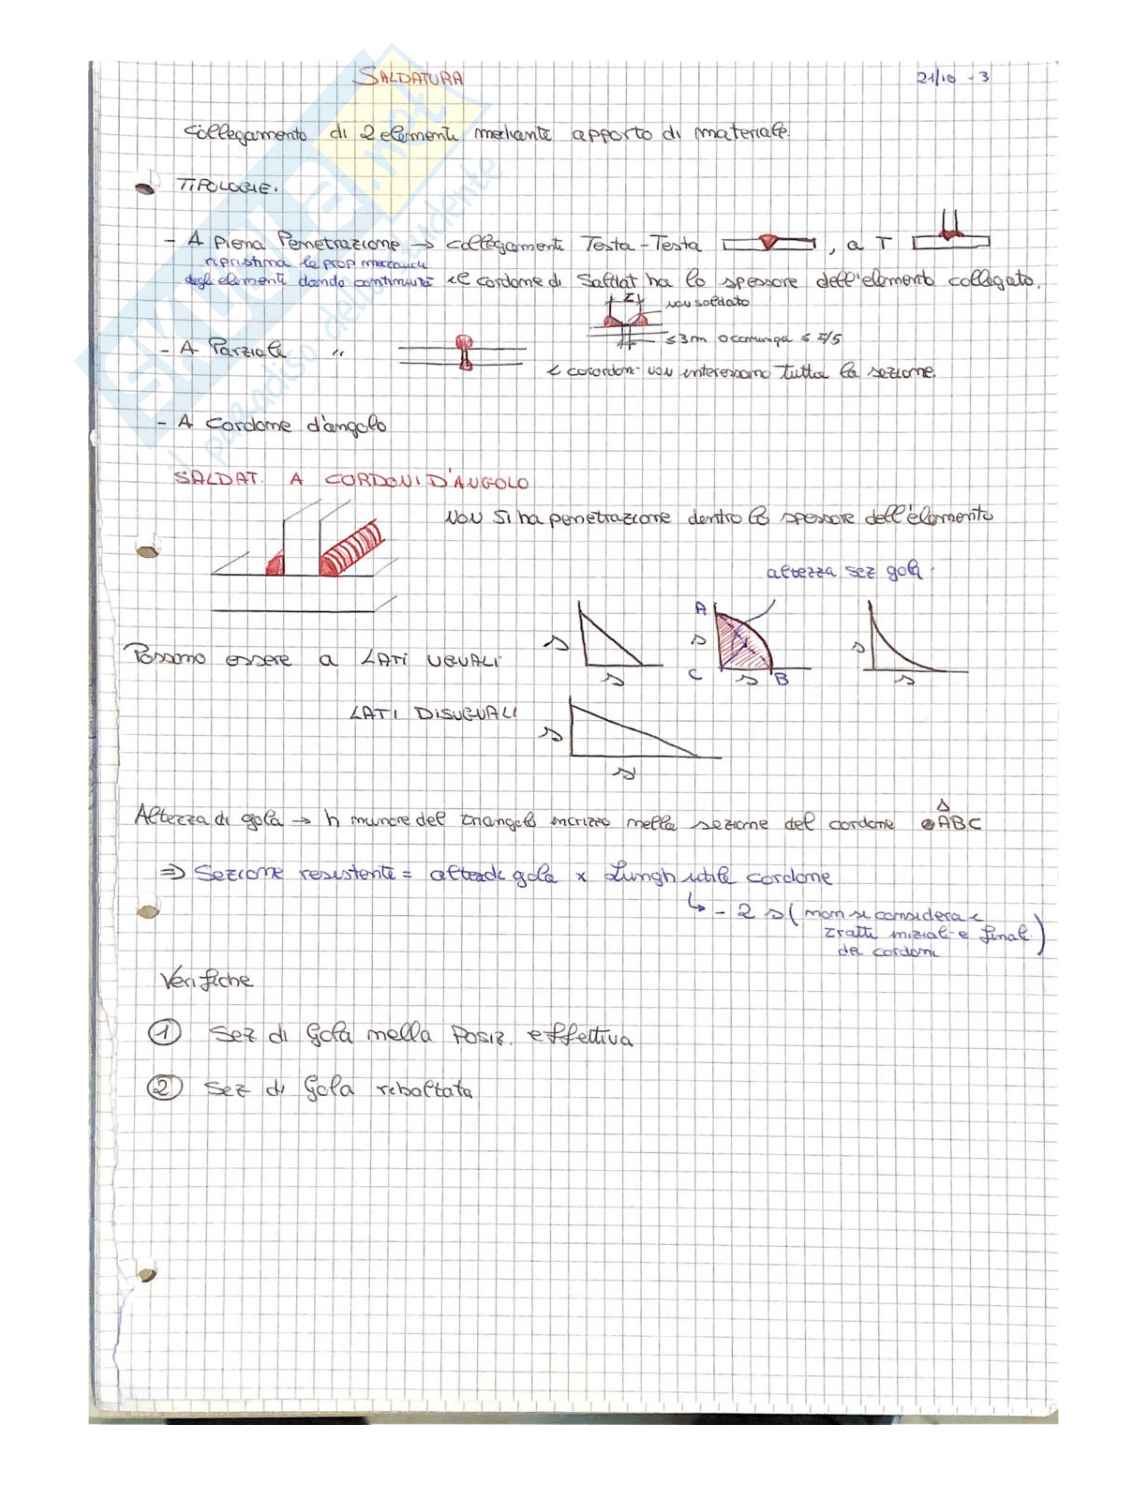 SALDATURA 21/10 - 3
Collegamento di 2 elementi mediante apporto di materiale.
TIPOLOGIE.
- A Piena Penetrazione → collegamenti Testa-Testa , a T
ripristina le prop meccanich
degli elementi dando continuità il cordone di Saldat ha lo spessore dell'elemento collegato.
t non saldato
- A Parziale " ≤3m o comunque ≤ t/5
i cordoni non interessano tutta la sezione.
- A Cordone d'angolo
SALDAT. A CORDONI D'ANGOLO
NON Si ha penetrazione dentro lo spessore dell'elemento
altezza sez gola
A
Possono essere a LATI UGUALI s s C s B s s s
LATI DISUGUALI s s'
Altezza di gola → h minore del triangolo inscritto nella sezione del cordone ABC
⇒ Sezione resistente = altezza di gola x Lungh utile cordone
↳ - 2 s (non si considera i
tratti iniziali e finali
dei cordoni)
Verifiche
① Sez di Gola nella Posiz. effettiva
② Sez di Gola ribaltata
SKUOLA.net
il paradiso dello studente